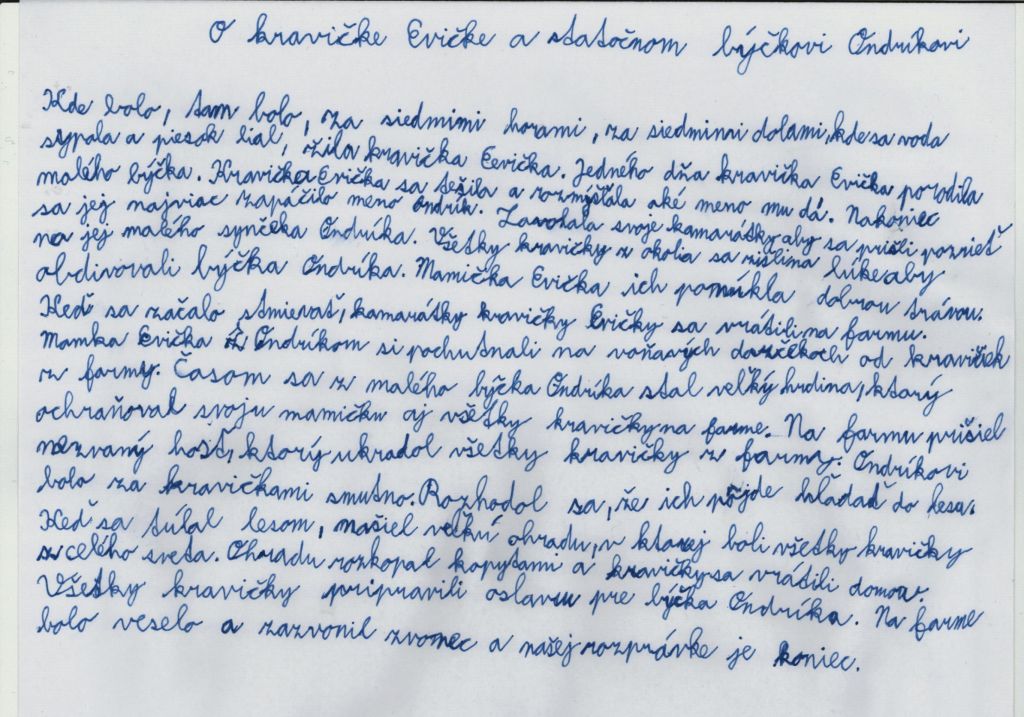 O kravičke Evičke a statočnom býčkovi Ondríkovi
Kde bolo, tam bolo, za siedmimi horami, za siedmimi dolami, kde sa voda
sypala a piesok lial, žila kravička Eevička. Jedného dňa kravička Evička porodila
malého býčka. Kravička Evička sa tešila a rozmýšľala aké meno mu dá. Nakoniec
sa jej najviac zapáčilo meno Ondrík. Zavolala svoje kamarátky aby sa prišli pozrieť
na jej malého synčeka Ondríka. Všetky kravičky z okolia sa zišli na lúke aby
obdivovali býčka Ondríka. Mamička Evička ich ponúkla dobrou trávou.
Keď sa začalo stmievať, kamarátky kravičky Evičky sa vrátili na farmu.
Mamka Evička z Ondríkom si pochutnali na voňavých darčekoch od kravičiek
z farmy. Časom sa z malého býčka Ondríka stal veľký hrdina, ktorý
ochraňoval svoju mamičku aj všetky kravičky na farme. Na farmu prišiel
nezvaný hosť, ktorý ukradol všetky kravičky z farmy. Ondríkovi
bolo za kravičkami smutno. Rozhodol sa, že ich pôjde hľadať do lesa.
Keď sa túlal lesom, našiel veľkú ohradu, v ktorej boli všetky kravičky
z celého sveta. Ohradu rozkopal kopytami a kravičky sa vrátili domov.
Všetky kravičky pripravili oslavu pre býčka Ondríka. Na farme
bolo veselo a zazvonil zvonec a našej rozprávke je koniec.